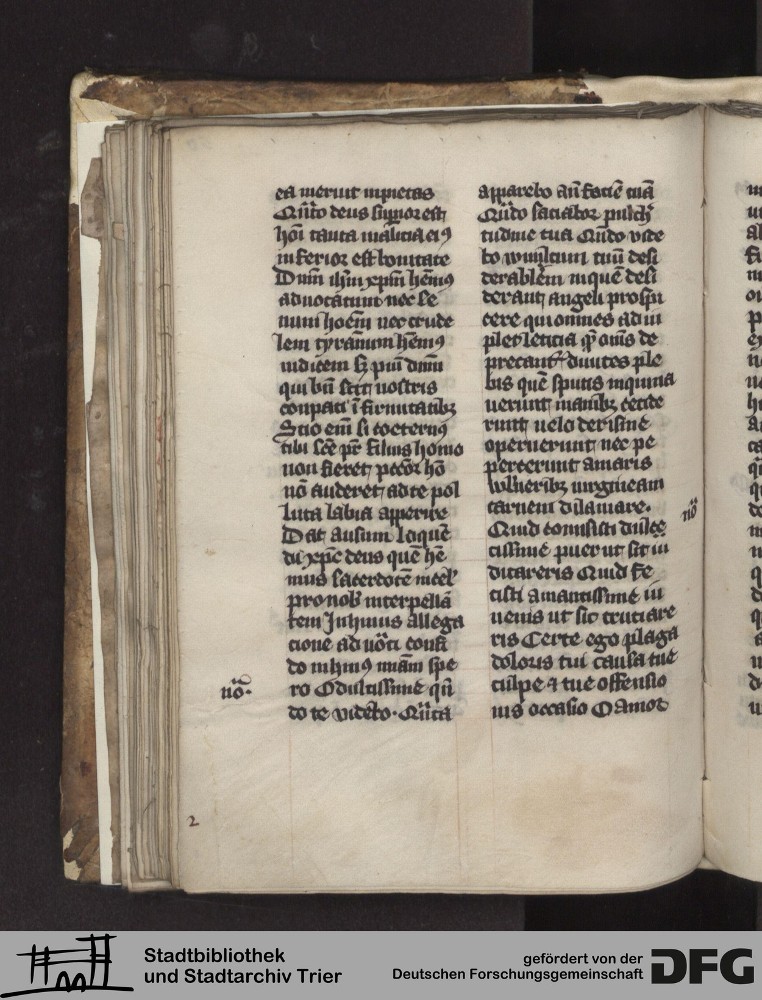 ea meruit impietas
Qm̄to deus supior est
hōi tanta malicia ei⁹
inferior est bonitate
Dnm ihm xpm hēm⁹
aduocatum nec se
num hoēm nec crude
lem tyrannum hēm⁹
iudicem sꝫ piū dnm
qui
conpati ī firmitatibꝫ
Scio eni si coetern⁹
tibi filius homo
non fieret hō
nō auderet ad te pol
luta labia apperire
Dat ausum loquē
di xpc deus quē hē
mus sacerdotē
pro nob interpellā
tem In huius allega
cione
do in hui⁹ spe
ro O dulcissime qn̄
do te videbo. Qn̄ta
nō.
2
apparebo an̄ faciē tuā
Qn̄do saciabor pulch
tudine tua Qn̄do vide
bo wultum tuū desi
derabilem in quē desi
derant angeli prospi
cere qui omnes ad im
plet leticia oms de
precant diuites ple
bis quē sputis inquina
uerunt manibꝫ cecide
runt uelo derisiue
operuerunt nec pe
percerunt amaris
wlneribꝫ uirgineam
carnem dilaniare.
Quid commisisti dulce
tissime puer ut sic iu
dicareris Quid fe
cisti amantissime iu
uenis ut sic cruciare
ris Certe ego plaga
doloris tui causa tue
culpe ⁊ tue offensio
nis occasio O amor
nō
Stadtbibliothek
und Stadtarchiv Trier
gefördert von der
Deutschen Forschungsgemeinschaft
DFG